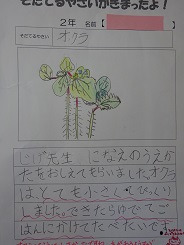 そだてるやさいがきまったよ!
2年 名前
そだてるやさい
オクラ
先生 になえのうえか
たをおしえてもらいました。オクラ
は、とても小さくてびっくり
しました。できたらゆでてご
はんにかけてたべたいです